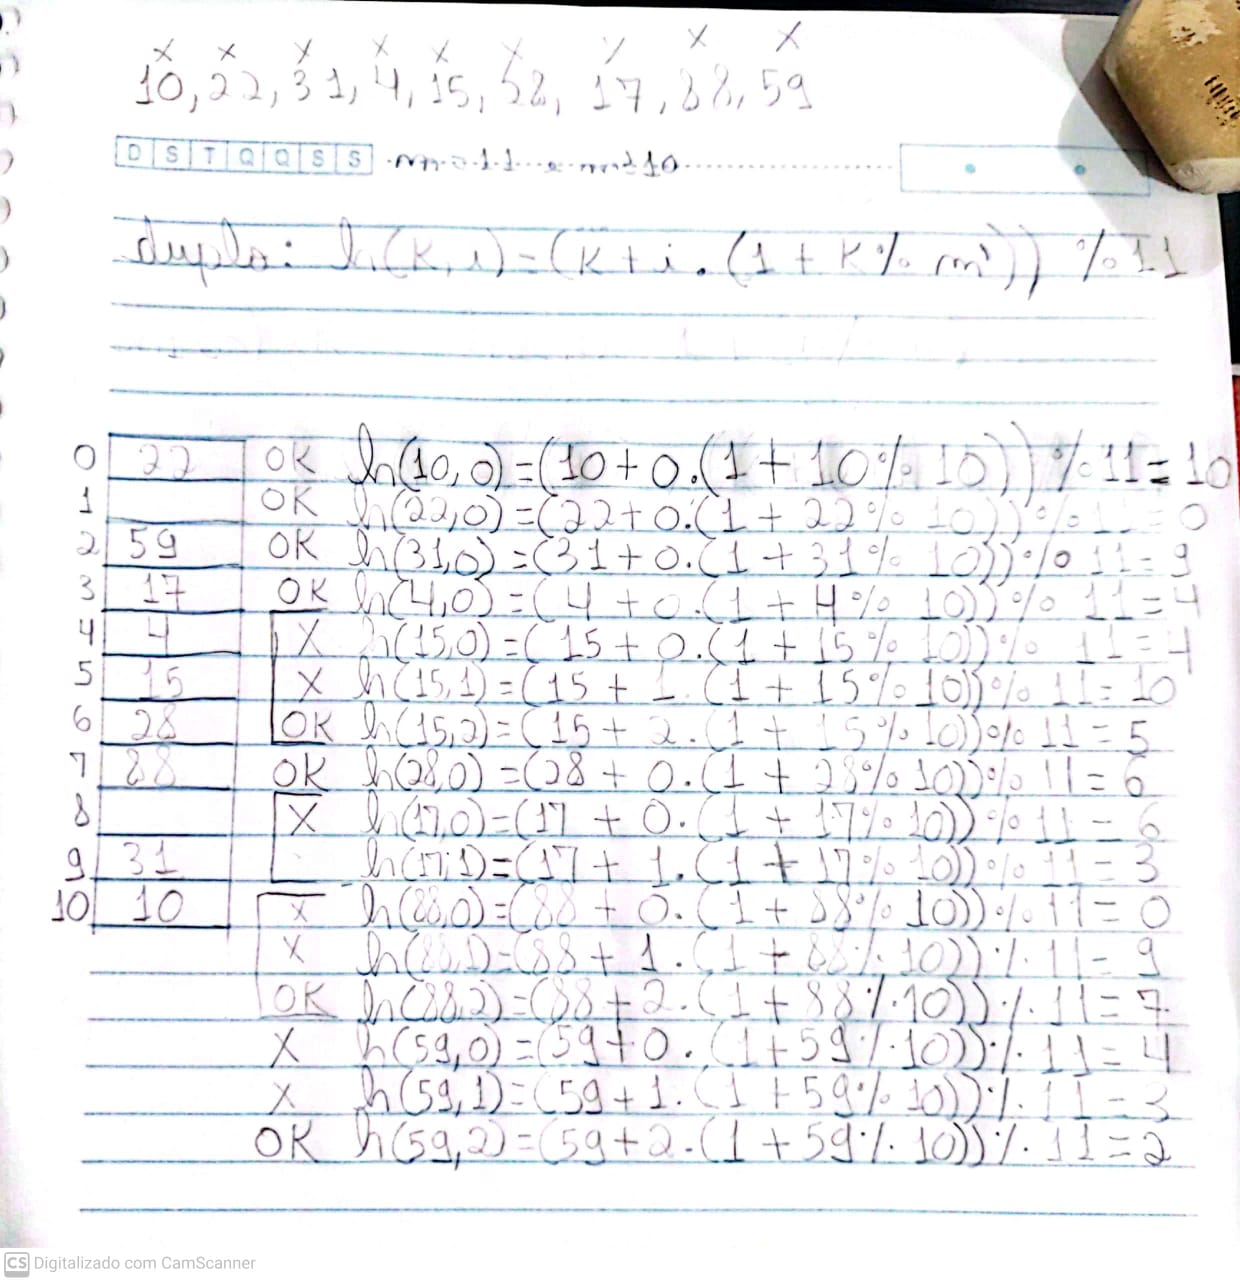 x x x x x x x x x
10, 22, 31, 4, 15, 28, 17, 88, 59
D S T Q Q S S m = 11 e m' = 10
duplo: h(k, i) = (k + i . (1 + k % m')) % 11
0 22 OK h(10,0) = (10 + 0.(1 + 10 % 10)) % 11 = 10
1 OK h(22,0) = (22 + 0.(1 + 22 % 10)) % 11 = 0
2 59 OK h(31,0) = (31 + 0.(1 + 31 % 10)) % 11 = 9
3 17 OK h(4,0) = (4 + 0.(1 + 4 % 10)) % 11 = 4
4 4 X h(15,0) = (15 + 0.(1 + 15 % 10)) % 11 = 4
5 15 X h(15,1) = (15 + 1.(1 + 15 % 10)) % 11 = 10
6 28 OK h(15,2) = (15 + 2.(1 + 15 % 10)) % 11 = 5
7 88 OK h(28,0) = (28 + 0.(1 + 28 % 10)) % 11 = 6
8 X h(17,0) = (17 + 0.(1 + 17 % 10)) % 11 = 6
9 31 h(17,1) = (17 + 1.(1 + 17 % 10)) % 11 = 3
10 10 X h(88,0) = (88 + 0.(1 + 88 % 10)) % 11 = 0
X h(88,1) = (88 + 1.(1 + 88 % 10)) % 11 = 9
OK h(88,2) = (88 + 2.(1 + 88 % 10)) % 11 = 7
X h(59,0) = (59 + 0.(1 + 59 % 10)) % 11 = 4
X h(59,1) = (59 + 1.(1 + 59 % 10)) % 11 = 3
OK h(59,2) = (59 + 2.(1 + 59 % 10)) % 11 = 2
CS Digitalizado com CamScanner